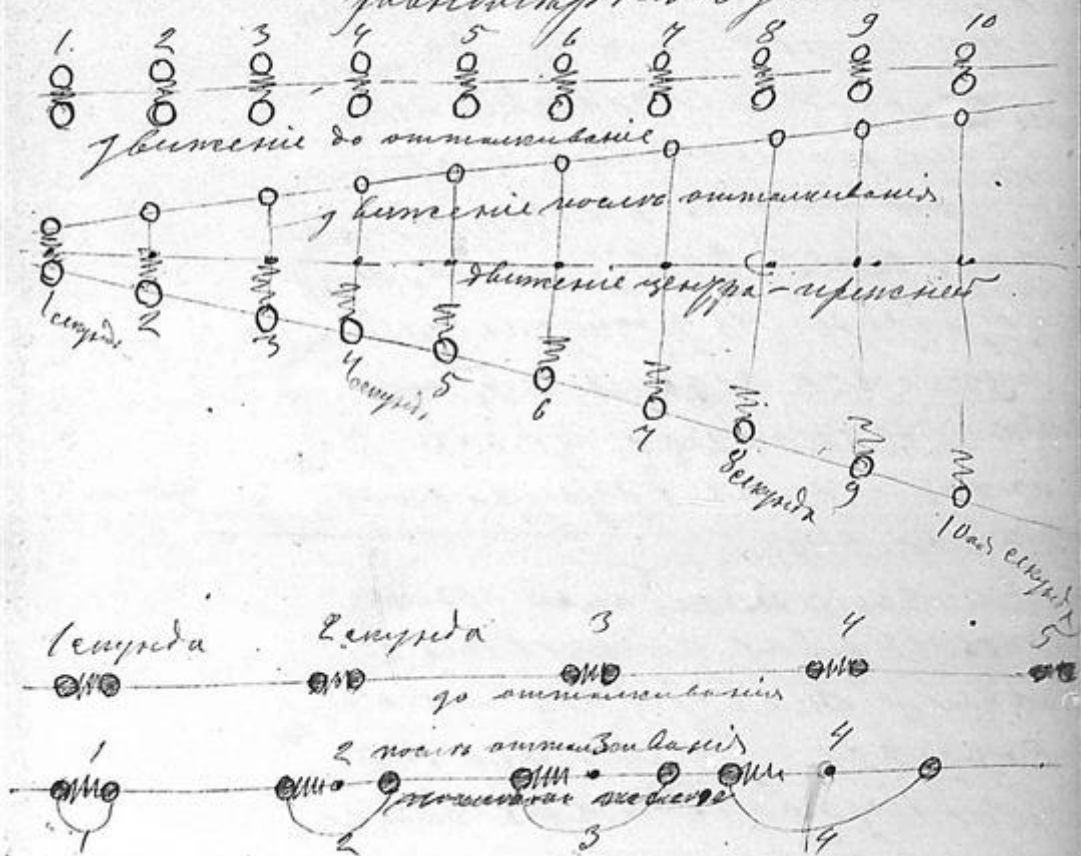 1. 2 3 4 5 6 7 8 9 10
движеніе до отталкиваніе
движеніе послѣ отталкиванія
движеніе центра - прежней
1 секунд.
2
3
4 секунд.
5
6
7
8 секунда
9
10ая секунда
1 секунда 2 секунда 3 4 5
до отталкиванія
1 2 послѣ отталкиванія 3 4
1 2 3 4